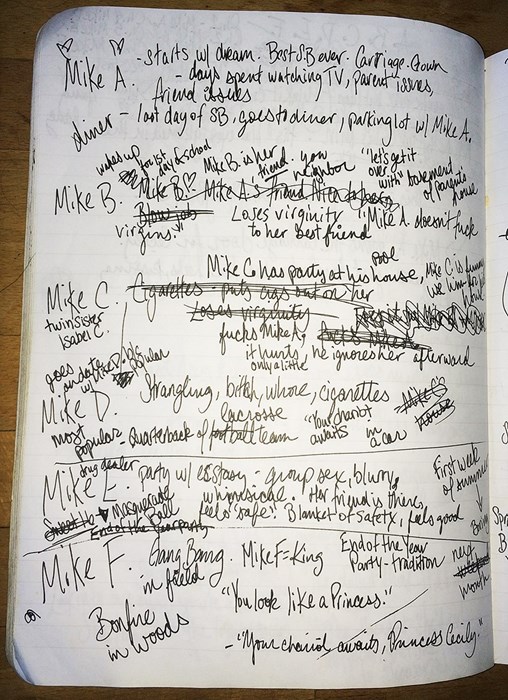 Mike A. - starts w/ dream. Best SB ever. Carriage. Gown
- days spent watching TV, parent issues,
friend issues
diner - last day of SB, goes to diner, parking lot w/ Mike A.
wakes up
for 1st day of school
Mike B. is her friend
neighbor
"let's get it over with"
basement of parents house
Mike B. Mike B.
Blow job
virgins.
Loses virginity
to her best friend
"Mike A. doesn't fuck
Mike C. has party at his pool house, Mike C is
Mike C.
twin sister
Isabel C.
Cigarettes - puts cigs out on her
Loses virginity
fucks Mike A,
it hurts, only a little
he ignores her afterward
goes on date w/ the
popular
Mike D. Strangling, bitch, whore, cigarettes
Mike C's house
most popular - quarterback of football lacrosse team
"Your chariot awaits
in a car
drug dealer
Mike E. party w/ ecstasy - group sex, blurry,
whimsical. Her friend is there,
feels "safe". Blanket of safety, feels good
first week of summer
Masquerade Ball
End of the Year Party
Mike F. Gang Bang. Mike F = King
in field
End of the Year
Party - tradition
next
month
"You look like a Princess."
Bonfire
in woods
- "Your chariot awaits, Princess Cecily."